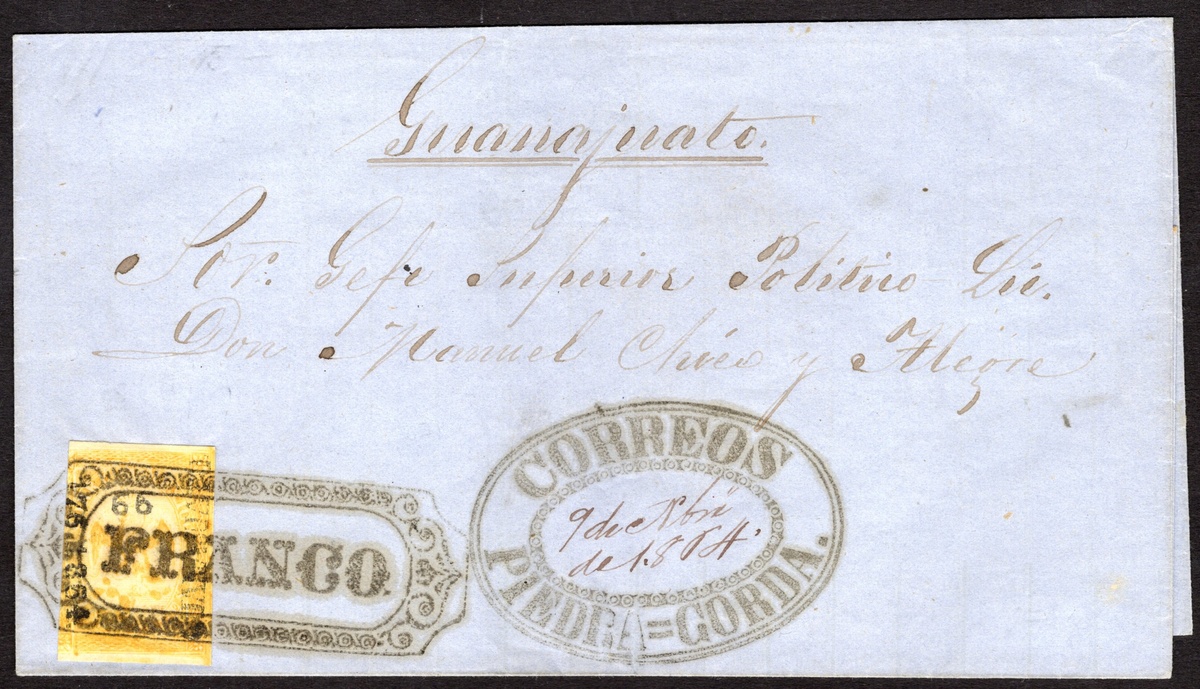 Guanajuato.
Sor. Gefe Superior Politico Lic.
Don Manuel Chico y Alegre
66
FRANCO
CORREOS
9 de Nbre
de 1.864.
PIEDRA=GORDA.